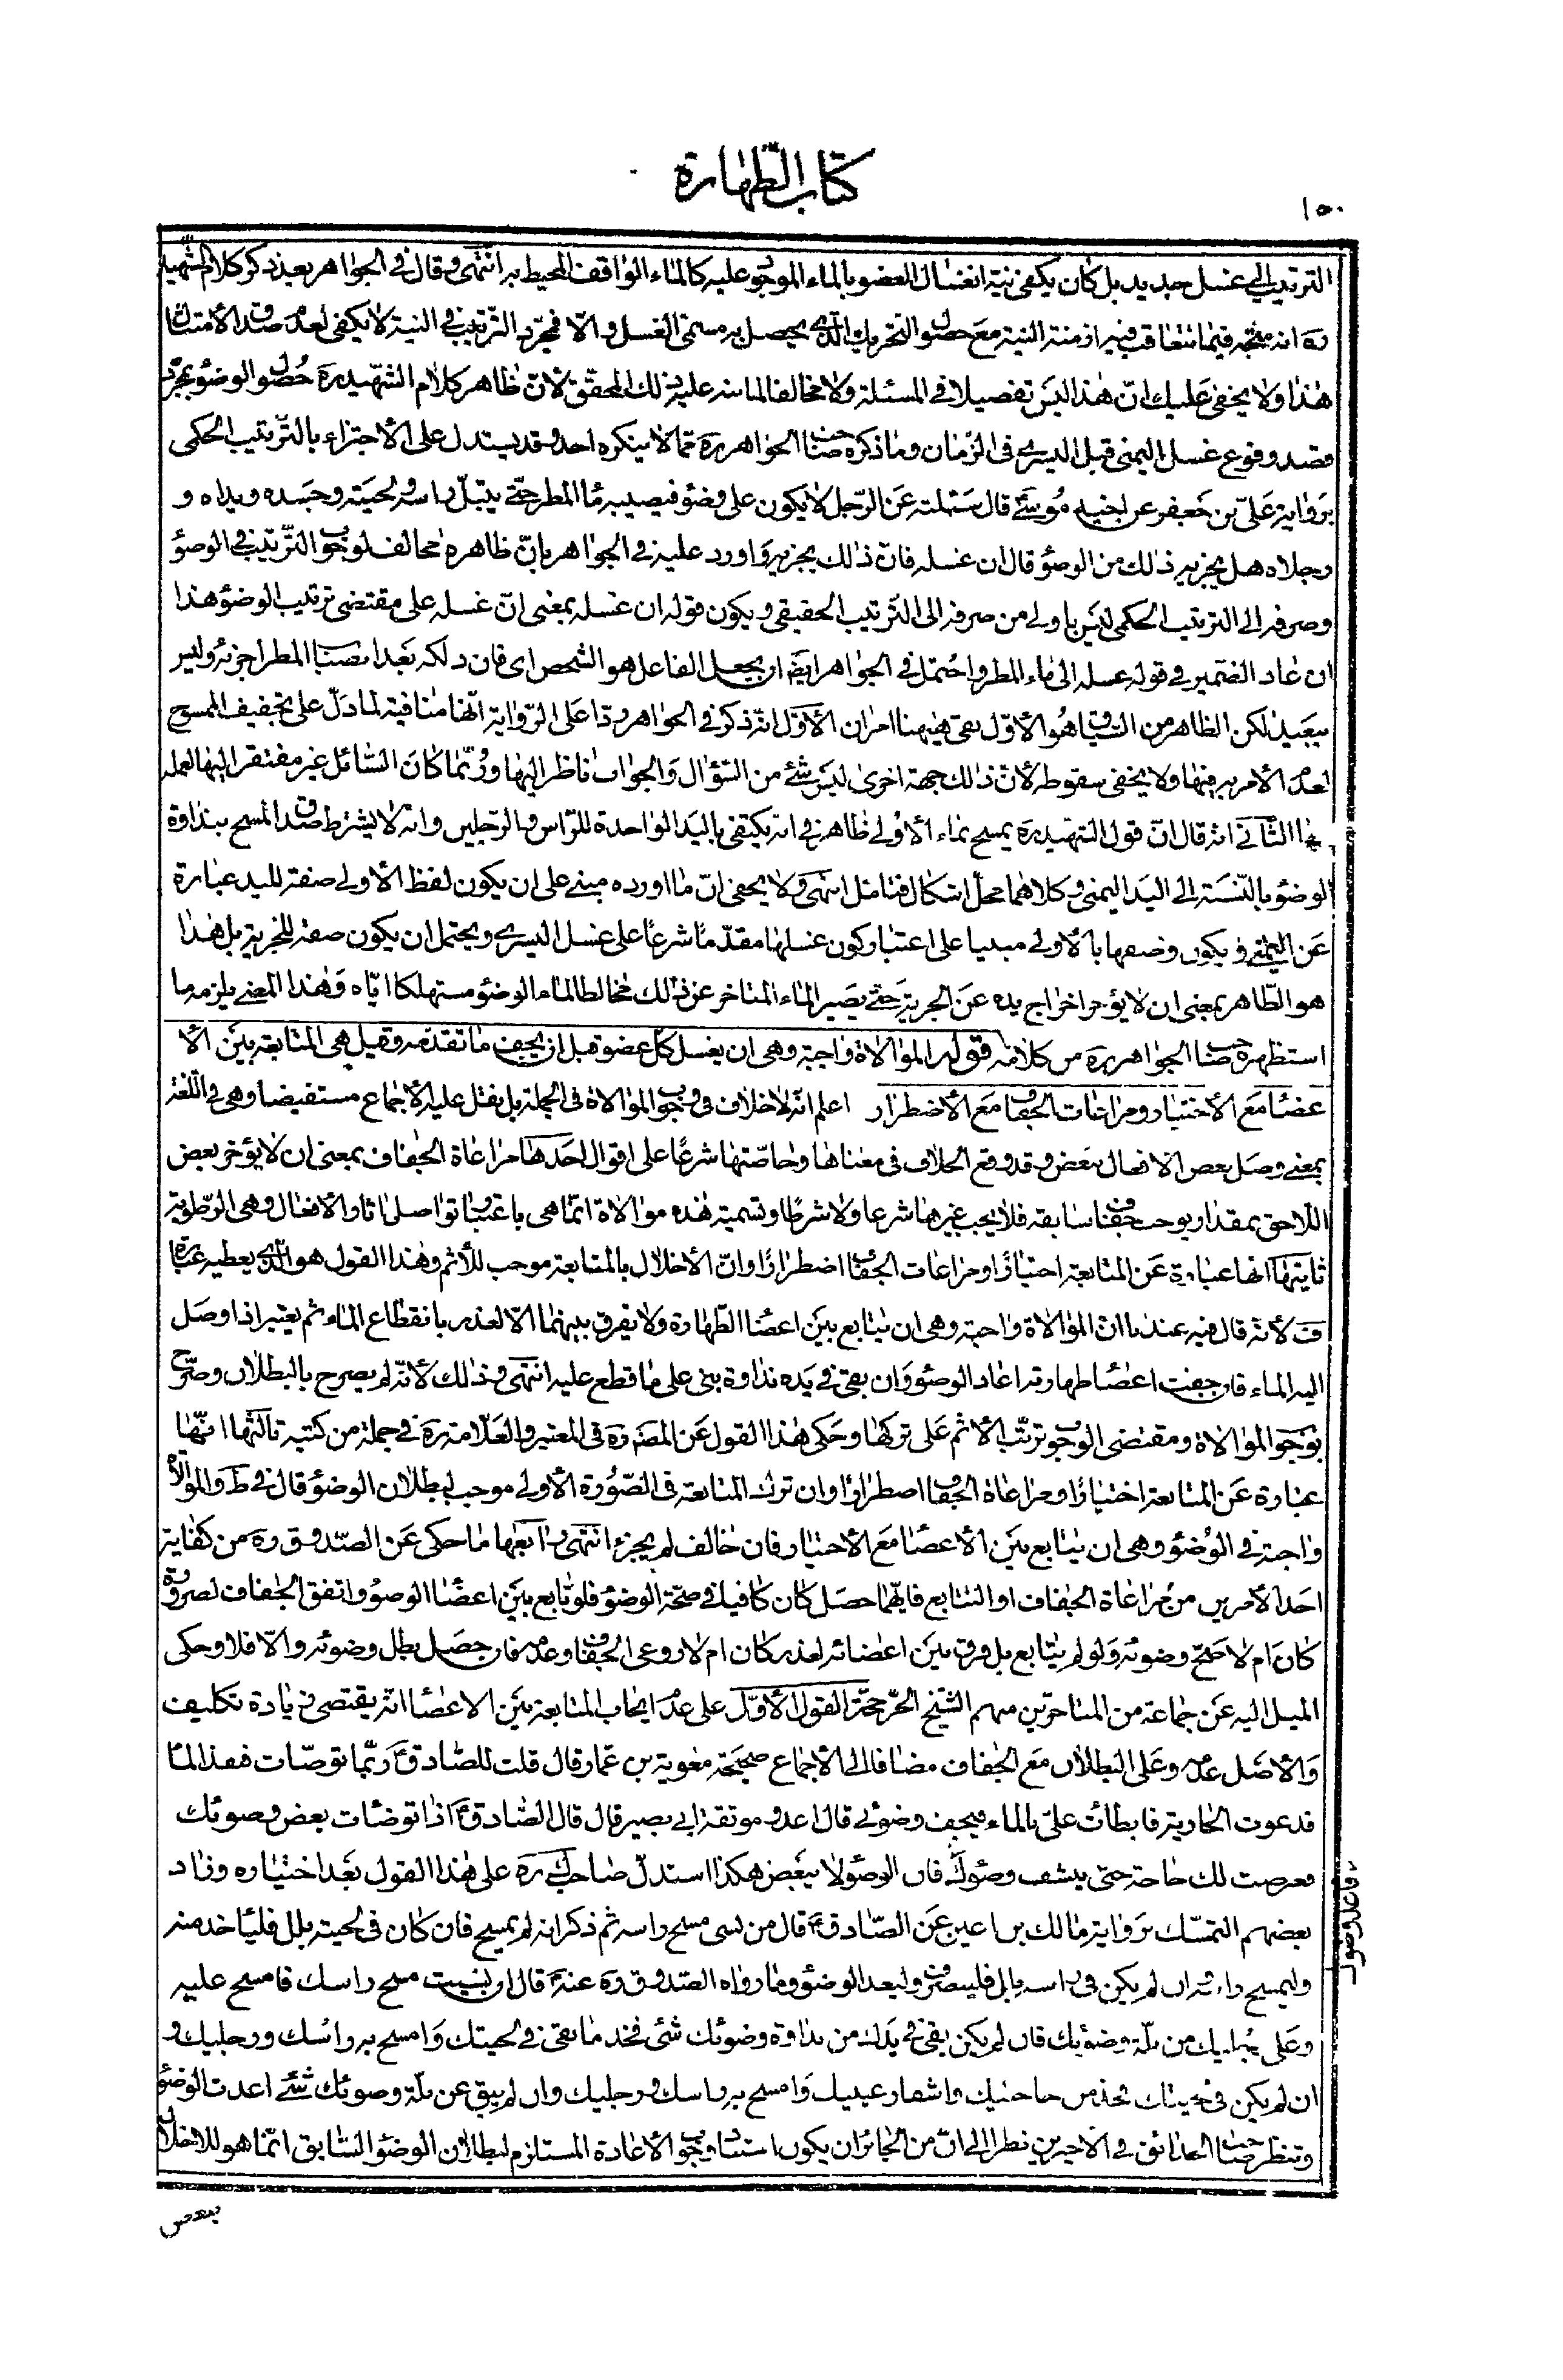 كتاب الطهارة
١٥٠
الترتيب الى غسل جديد بل كان يكفى نية انغسال العضو بالماء الموجود عليه كالماء الواقف المحيط به انتهى وقال فى الجواهر بعد ذكر كلام الشهيد
ره انه متجه فيما تتعاقب فيه ازمنة النية مع حصول التحريك الذى يحصل به مسمى الغسل والا فمجرد الترتيب فى النية لا يكفى لعدم صدق الامتثال
هذا ولا يخفى عليك ان هذا ليس تفصيلا فى المسئلة ولا مخالفا لما بنى عليه ذلك المحقق لان ظاهر كلام الشهيد ره حصول الوضوء بمجرد
قصد وقوع غسل اليمنى قبل اليسرى فى الزمان وما ذكره صاحب الجواهر ره مما لا ينكره احد وقد يستدل على الاجتزاء بالترتيب الحكمى
برواية على بن جعفر عن اخيه موسى قال سئلته عن الرجل لا يكون على وضوء فيصيبه ماء المطر حتى يبتل راسه ولحيته وجسده ويداه و
رجلاه هل يجزيه ذلك من الوضوء قال ان غسله فان ذلك يجزيه واورد عليه فى الجواهر بان ظاهره مخالف لوجوب الترتيب فى الوضوء
وصرفه الى الترتيب الحكمى ليس باولى من صرفه الى الترتيب الحقيقى ويكون قوله ان غسله بمعنى ان غسله على مقتضى ترتيب الوضوء هذا
ان عاد الضمير فى قوله غسله الى ماء المطر واحتمل فى الجواهر ايضا ان يجعل الفاعل هو الشخص اى فان دلكه بعد اصباب المطر اجزئه وليس
ببعيد لكن الظاهر من السياق هو الاول بقى هيهنا امران الاول انه ذكر فى الجواهر ردا على الرواية انها منافية لما دل على تخفيف المسح
لعدم الامر به فيها ولا يخفى سقوطه لان ذلك جهة اخرى ليس شئ من السؤال والجواب ناظرا اليها وربما كان السائل غير مفتقر اليها لعلمه
بها الثانى انه قال ان قول الشهيد ره يمسح بماء الاولى ظاهر فى انه يكتفى باليد الواحدة للراس والرجلين وانه لا يشترط صدق المسح بنداوة
الوضوء بالنسبة الى اليد اليمنى وكلاهما محل اشكال فتامل انتهى ولا يخفى ان ما اورده مبنى على ان يكون لفظ الاولى صفة لليد عبارة
عن اليمنى ويكون وصفها بالاولى مبنيا على اعتبار كون غسلها مقدما شرعا على غسل اليسرى ويحتمل ان يكون صفة للجرية بل هذا
هو الظاهر بمعنى ان لا يؤخر اخراج يده عن الجرية حتى يصير الماء المتاخر عن ذلك مخالطا لماء الوضوء مستهلكا اياه وهذا المعنى يلزمه ما
استظهره صاحب الجواهر ره من كلامه قوله الموالاة واجبة وهى ان يغسل كل عضو قبل ان يجف ما تقدمه وقيل هى المتابعة بين الا
عضاء مع الاختيار ومراعات الجفاف مع الاضطرار اعلم انه لا خلاف فى وجوب الموالاة فى الجملة بل نقل عليه الاجماع مستفيضا وهى فى اللغة
بمعنى وصل بعض الافعال ببعض وقد وقع الخلاف فى معناها وخاصتها شرعا على اقوال احدها مراعاة الجفاف بمعنى ان لا يؤخر بعض
اللاحق بمقدار يوجب جفاف سابقه فلا يجب غيرها شرعا ولا شرطا وتسمية هذه موالاة انما هى باعتبار تواصل اثار الافعال وهى الرطوبة
ثانيتها انها عبارة عن المتابعة اختيارا ومراعات الجفاف اضطرارا وان الاخلال بالمتابعة موجب للاثم وهذا القول هو الذى يعطيه عبارة
ف لانه قال فيه عندنا ان الموالاة واجبة وهى ان يتابع بين اعضاء الطهارة ولا يفرق بينهما الا لعذر بانقطاع الماء ثم يعتبر اذا وصل
اليه الماء فان جفت اعضاء طهارته اعاد الوضوء وان بقى فى يده نداوة بنى على ما قطع عليه انتهى وذلك لانه لم يصرح بالبطلان وصرح
بوجوب الموالاة ومقتضى الوجوب ترتب الاثم على تركها وحكى هذا القول عن المص ره فى المعتبر والعلامة ره فى جملة من كتبه ثالثها انها
عبارة عن المتابعة اختيارا ومراعاة الجفاف اضطرارا وان ترك المتابعة فى الصورة الاولى موجب لبطلان الوضوء قال فى ط والموالاة
واجبة فى الوضوء وهى ان يتابع بين الاعضاء مع الاختيار فان خالف لم يجزء انتهى رابعها ما حكى عن الصدوق ره من كفاية
احد الامرين من مراعاة الجفاف او التتابع فايهما حصل كان كافيا فى صحة الوضوء فلو تابع بين اعضاء الوضوء واتفق الجفاف لضرورة
كان ام لا صح وضوئه ولو لم يتابع بل فرق بين اعضائه لعذر كان ام لا روعى الجفاف وعدمه فان حصل بطل وضوئه والا فلا وحكى
الميل اليه عن جماعة من المتاخرين منهم الشيخ الحر حجة القول الاول على عدم ايجاب المتابعة بين الاعضاء انه يقتضى زيادة تكليف
والاصل عدمه وعلى البطلان مع الجفاف مضافا الى الاجماع صحيحة معوية بن عمار قال قلت للصادق ع ربما توضات فنفد الماء
فدعوت الجارية فابطات على بالماء فيجف وضوئى قال اعد وموثقة ابى بصير قال قال الصادق ع اذا توضات بعض وضوئك
فعرضت لك حاجة حتى ينشف وضوئك فان الوضوء لا يتبعض هكذا استدل صاحب ك ره على هذا القول بعد اختياره وزاد
فاعد وضوئك
بعضهم التمسك برواية مالك بن اعين عن الصادق ع قال من نسى مسح راسه ثم ذكر انه لم يمسح فان كان فى لحيته بلل فلياخذ منه
وليمسح راسه وان لم يكن فى راسه بلل فلينصرف وليعد الوضوء وما رواه الصدوق ره عنه ع قال ان نسيت مسح راسك فامسح عليه
وعلى رجليك من بلة وضوئك فان لم يكن بقى فى يدك من نداوة وضوئك شئ فخذ ما بقى فى لحيتك وامسح به راسك ورجليك و
ان لم يكن فى لحيتك فخذ من حاجبيك واشفار عينيك وامسح به راسك ورجليك وان لم يبق من بلة وضوئك شئ اعدت الوضوء
وتنظر صاحب الحدائق فى الاخيرين نظرا الى ان من الجائز ان يكون استناد وجوب الاعادة المستلزم لبطلان الوضوء السابق انما هو للاخلال
ببعض